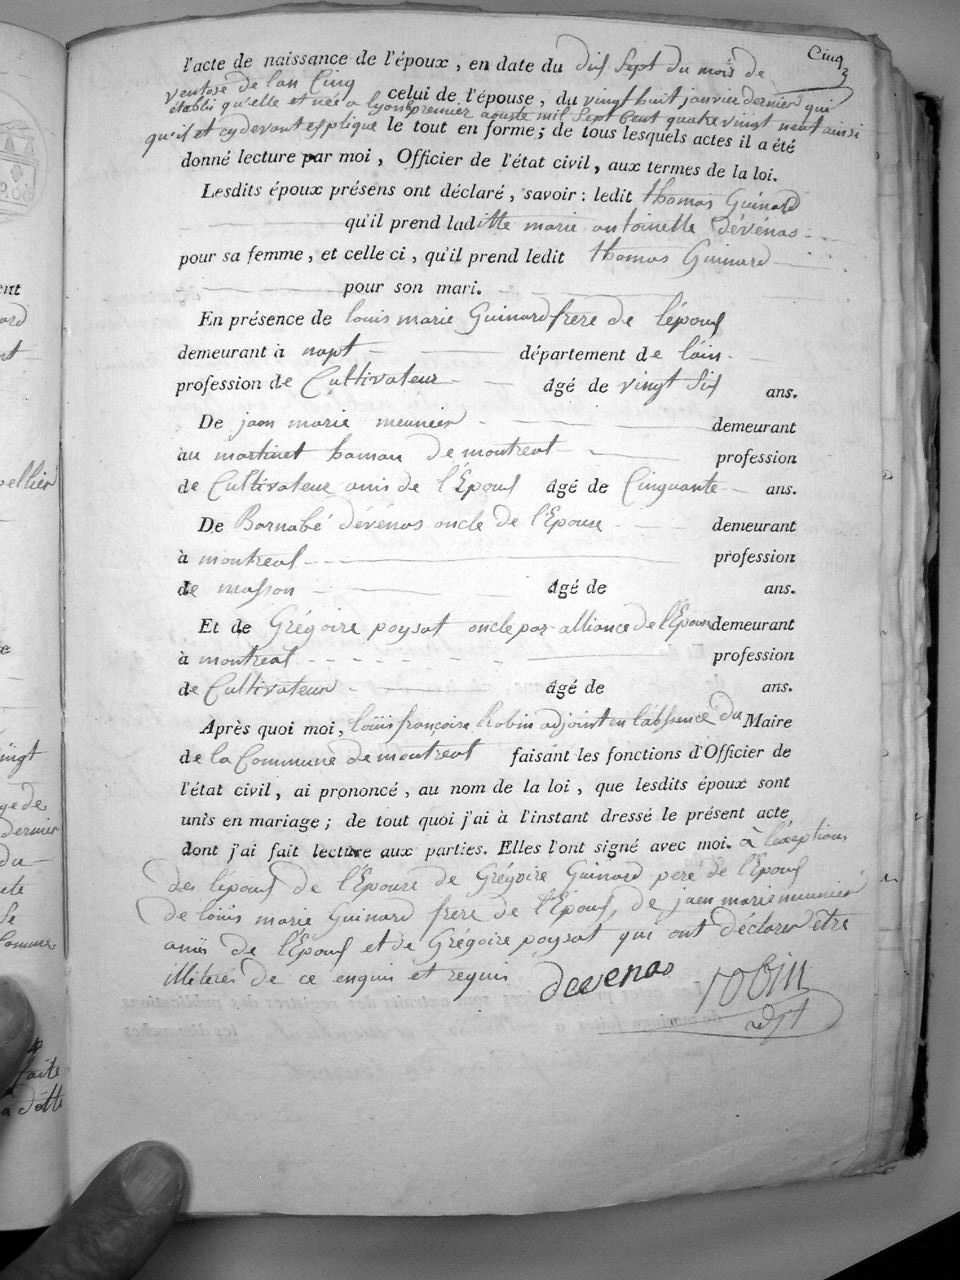 Cinq
l'acte de naissance de l'époux, en date du dix Sept du mois de
ventose de l'an Cinq celui de l'épouse, du vingt huit janvier dernier qui
établi qu'elle et née a lyon le premier aouste mil Sept Cent quatre vingt neuf ainsi
qu'il et cydevant expliqué le tout en forme; de tous lesquels actes il a été
donné lecture par moi, Officier de l'état civil, aux termes de la loi.
Lesdits époux présens ont déclaré, savoir: ledit thomas Guinard
qu'il prend laditte marie antoinette dévénas
pour sa femme, et celle ci, qu'il prend ledit thomas Guinard
pour son mari.
En présence de louis marie Guinard frere de l'époux
demeurant à napt département de l'ain
profession de Cultivateur âgé de vingt six ans.
De jaen marie meunier demeurant
au martinet hamau de montreal profession
de Cultivateur amis de l'Époux âgé de Cinquante ans.
De Barnabé dévénas oncle de l'Epouse demeurant
à montreal profession
de masson âgé de ans.
Et de Grégoire poysat oncle par alliance de l'Epouse demeurant
à montreal profession
de Cultivateur âgé de ans.
Après quoi moi, loüis françois Robin adjoint en l'absence du Maire
de la Commune de montreal faisant les fonctions d'Officier de
l'état civil, ai prononcé, au nom de la loi, que lesdits époux sont
unis en mariage; de tout quoi j'ai à l'instant dressé le présent acte
dont j'ai fait lecture aux parties. Elles l'ont signé avec moi. à l'exception
des l'époux de l'Epouse de Grégoire Guinard pere de l'Epoux
de loüis marie Guinard frere de l'Epoux, de jaen marie meunier
amis de l'Epoux et de Grégoire poysat qui ont déclaré être
illiteres de ce enquis et requis devenas robin
adjt